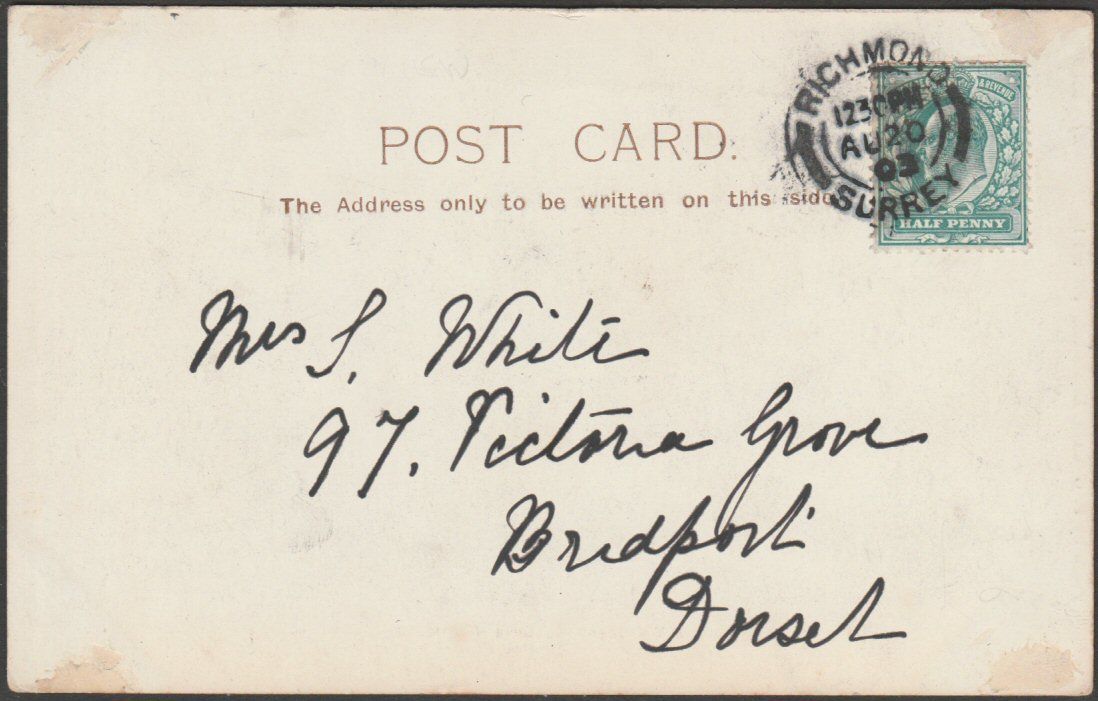 POST CARD.
The Address only to be written on this side
RICHMOND
12 30 PM
AU 20
03
SURREY
& REVENUE
HALF PENNY
Mrs S. White
97, Victoria Grove
Bridport
Dorset